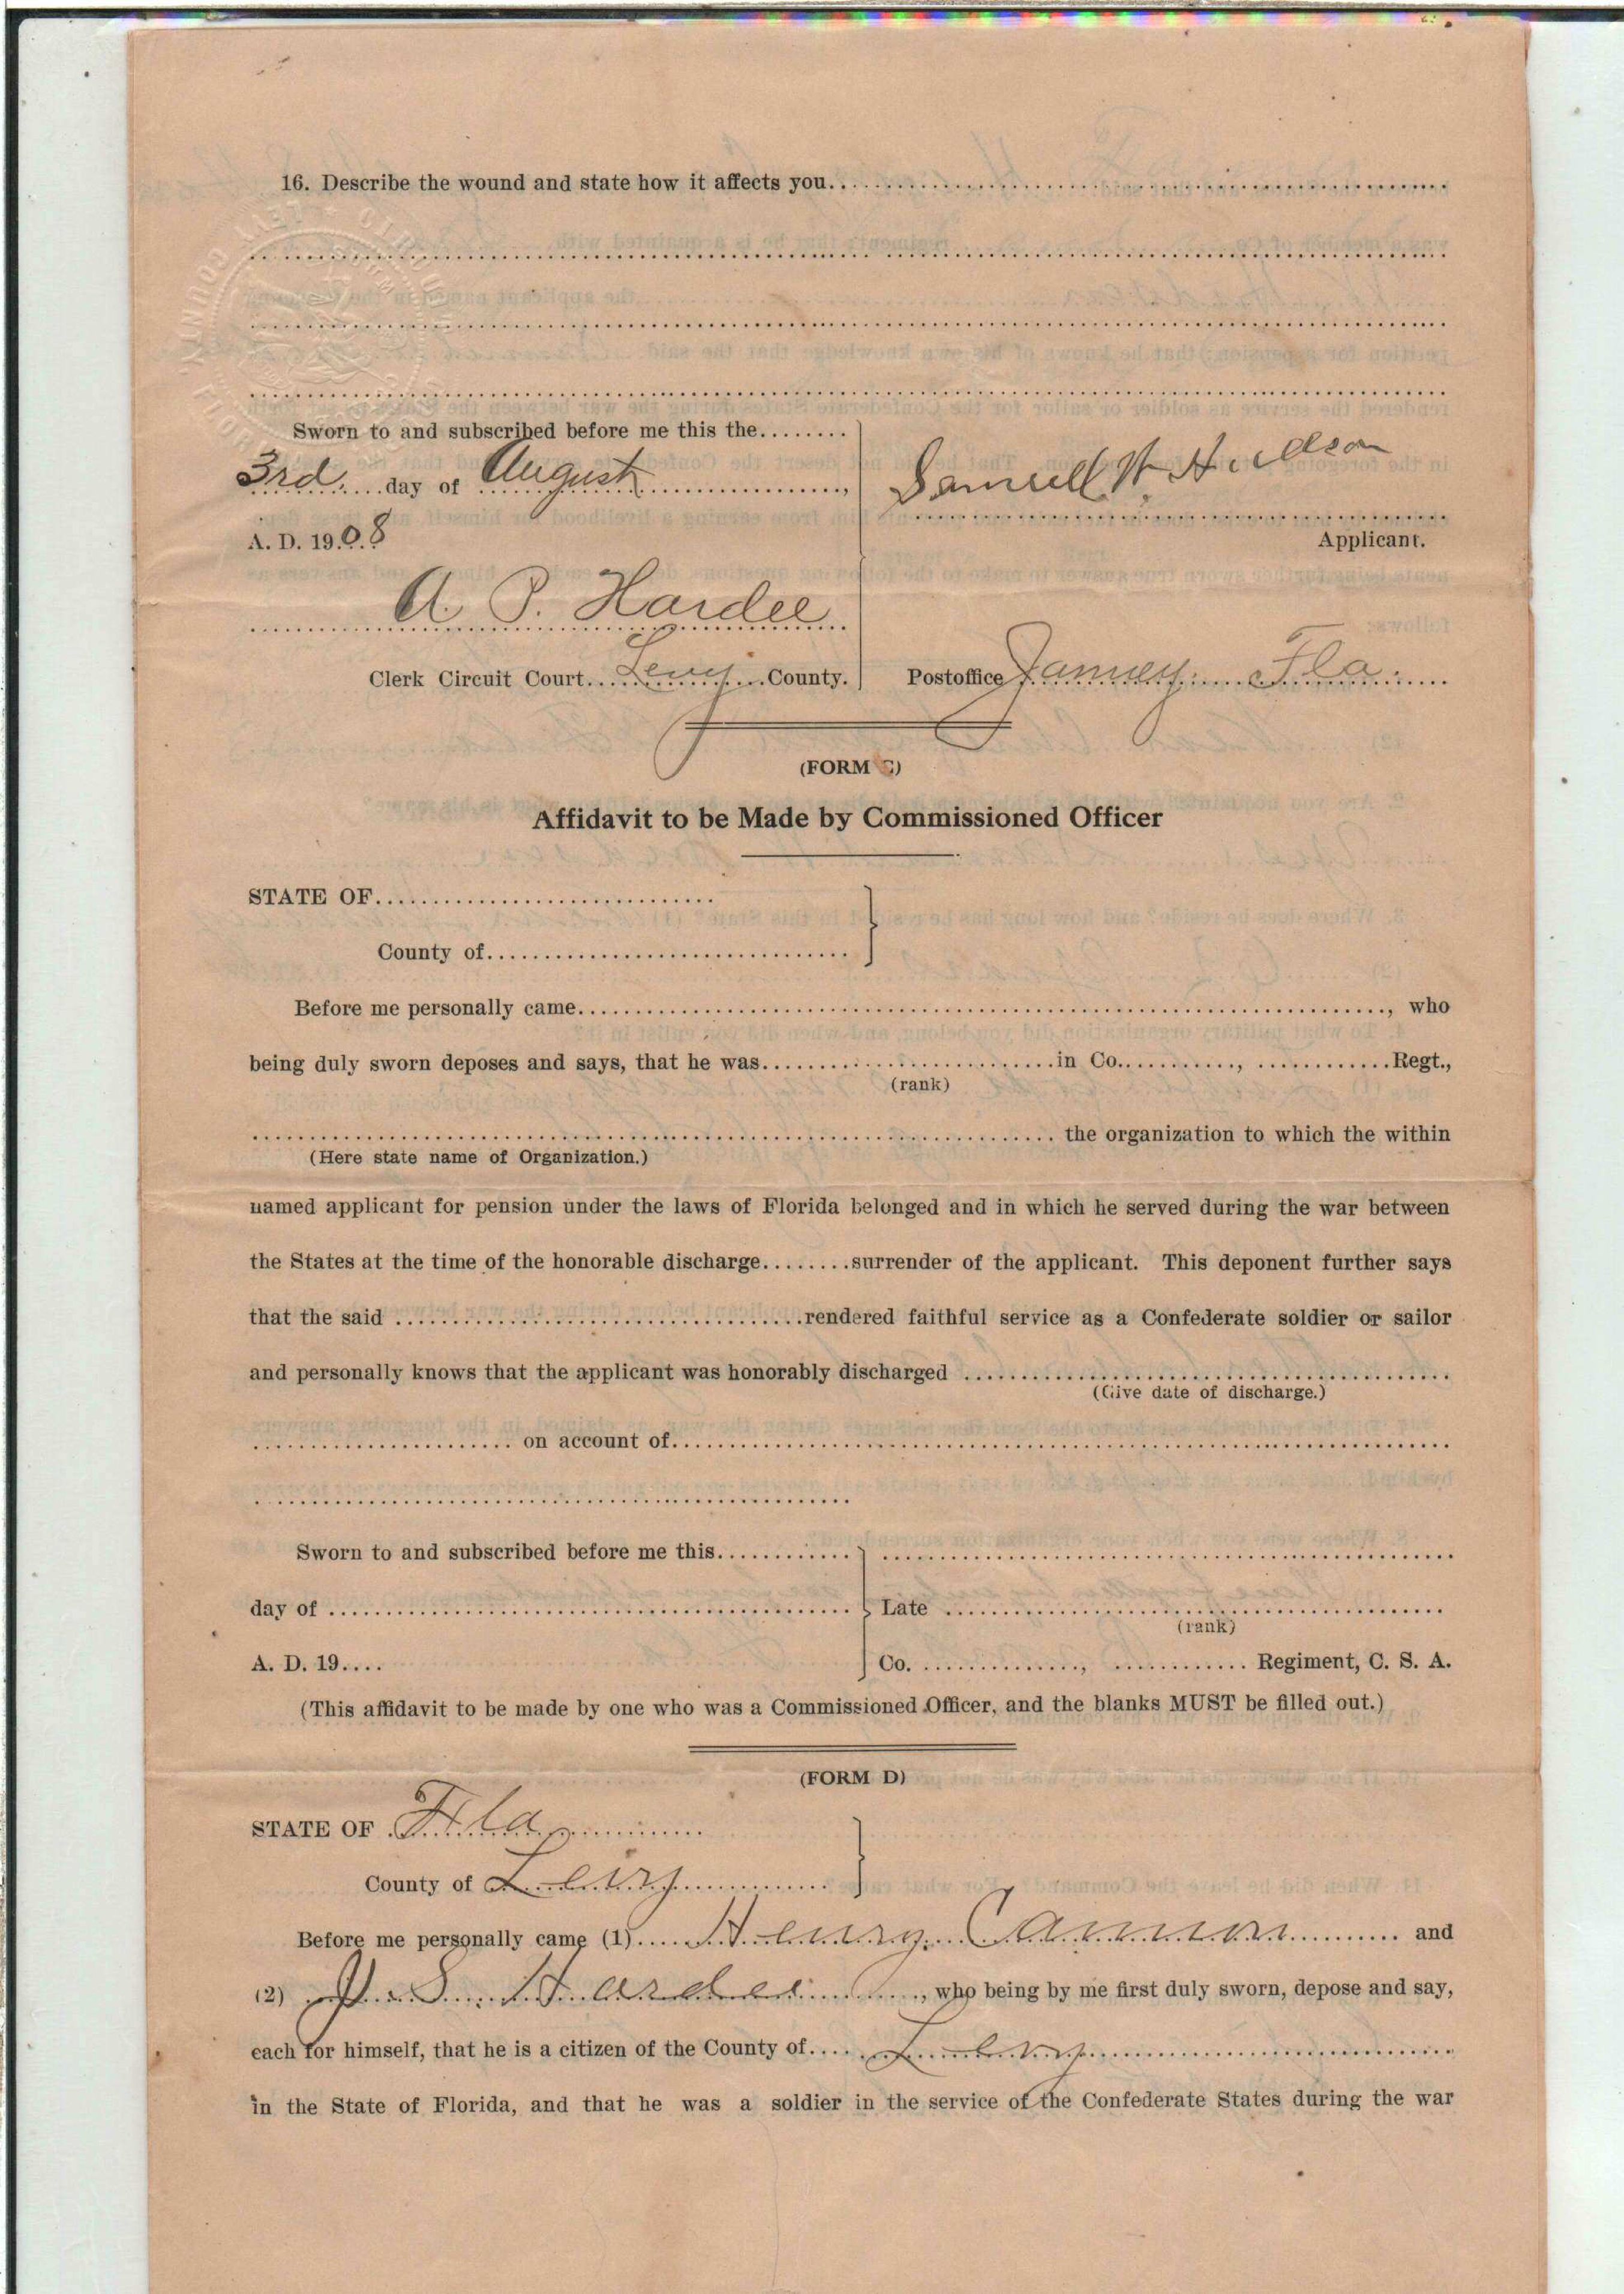 16. Describe the wound and state how it affects you
Sworn to and subscribed before me this the
3rd day of August,
A. D. 1908
Samuell H Hudson
Applicant.
A. P. Hardee
Clerk Circuit Court Levy County.
Postoffice Janney Fla.
(FORM C)
Affidavit to be Made by Commissioned Officer
STATE OF
County of
Before me personally came, who
being duly sworn deposes and says, that he was in Co., Regt.,
(rank)
the organization to which the within
(Here state name of Organization.)
named applicant for pension under the laws of Florida belonged and in which he served during the war between
the States at the time of the honorable discharge surrender of the applicant. This deponent further says
that the said rendered faithful service as a Confederate soldier or sailor
and personally knows that the applicant was honorably discharged
(Give date of discharge.)
on account of
Sworn to and subscribed before me this
day of
Late
(rank)
A. D. 19
Co. , Regiment, C. S. A.
(This affidavit to be made by one who was a Commissioned Officer, and the blanks MUST be filled out.)
(FORM D)
STATE OF Fla
County of Levy
Before me personally came (1) Henry Cannon and
(2) P. S. Hardee, who being by me first duly sworn, depose and say,
each for himself, that he is a citizen of the County of Levy
in the State of Florida, and that he was a soldier in the service of the Confederate States during the war